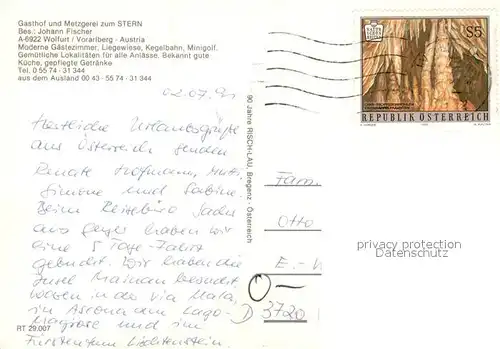 Gasthof und Metzgerei zum STERN
Bes.: Johann Fischer
A-6922 Wolfurt / Vorarlberg - Austria
Moderne Gästezimmer, Liegewiese, Kegelbahn, Minigolf.
Gemütliche Lokalitäten für alle Anlässe. Bekannt gute
Küche, gepflegte Getränke
Tel. 0 55 74 - 31 344
aus dem Ausland 00 43 - 55 74 - 31 344
02.07.91
Herzliche Urlaubsgrüße
aus Österreich senden
Renate Hofmann, Mutti
Simone und Sabine
Beim Reisebüro
aus haben wir
eine 5 Tage-Fahrt
gebucht. Wir haben die
Insel Mainau besucht,
waren in der Via Mala,
in Ascona am Lago-
und im
Fürstentum Lichtenstein.
RT 29.007
90 Jahre RISCH-LAU, Bregenz - Österreich
S5
REPUBLIK ÖSTERREICH
Fam.
Otto
E.-
D 3720
privacy protection
Datenschutz